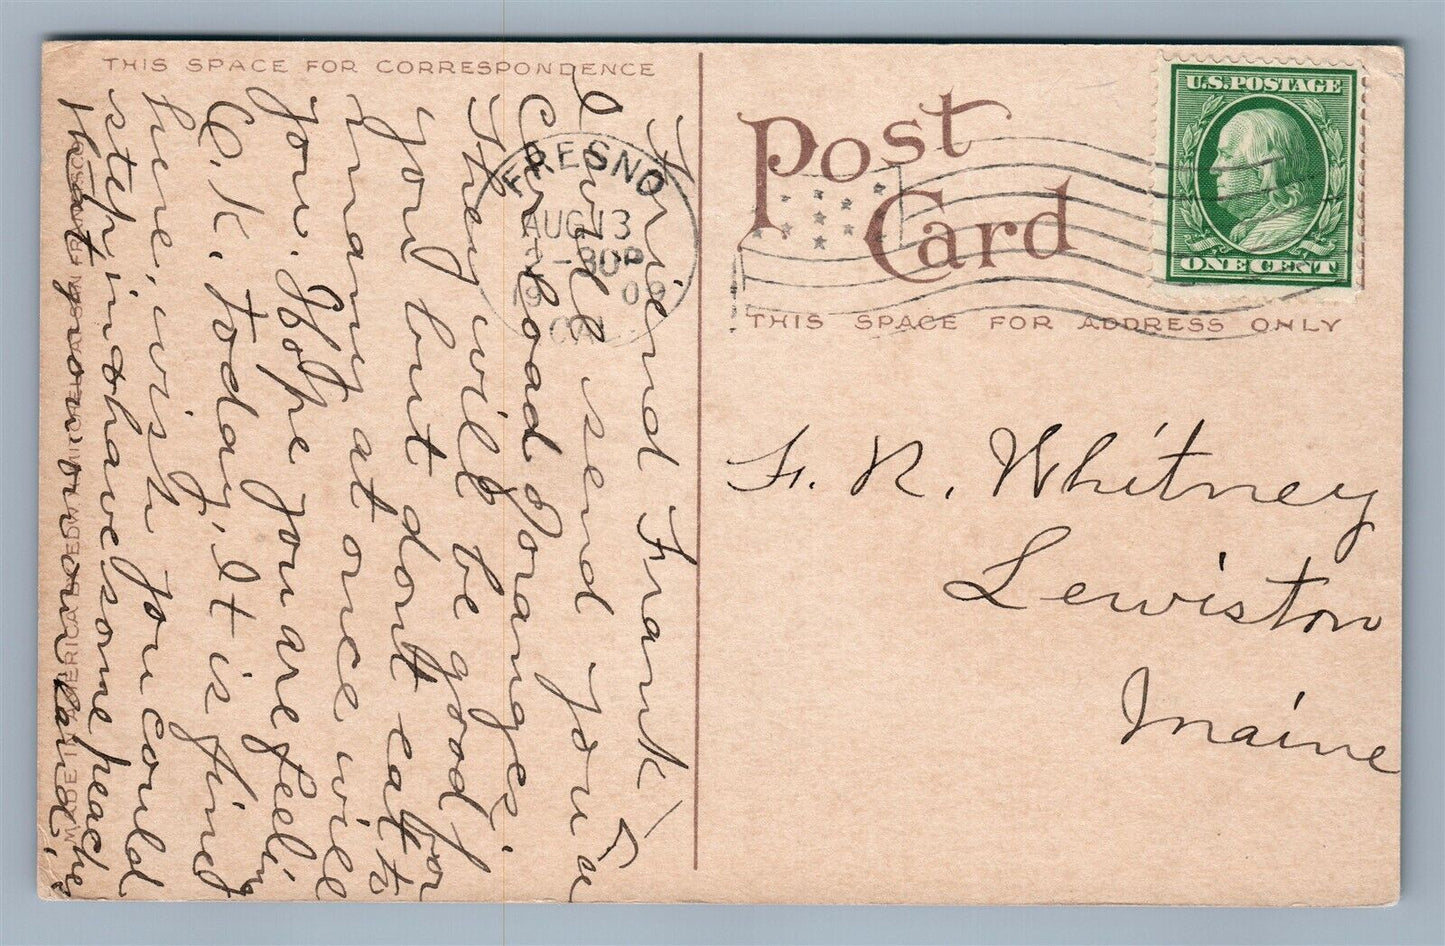 THIS SPACE FOR CORRESPONDENCE
Friend Frank
I will send you a
Car load Oranges.
They will be good for
you but dont eat to
many at once will
you. I Hope you are feeling
O. K. today, It is fine
here, wish you could
step in & have some peaches
that you in our land.
FRESNO
AUG 13
-30P
1909
CAL
Post
Card
U.S. POSTAGE
ONE CENT
THIS SPACE FOR ADDRESS ONLY
F. R. Whitney
Lewiston
Maine